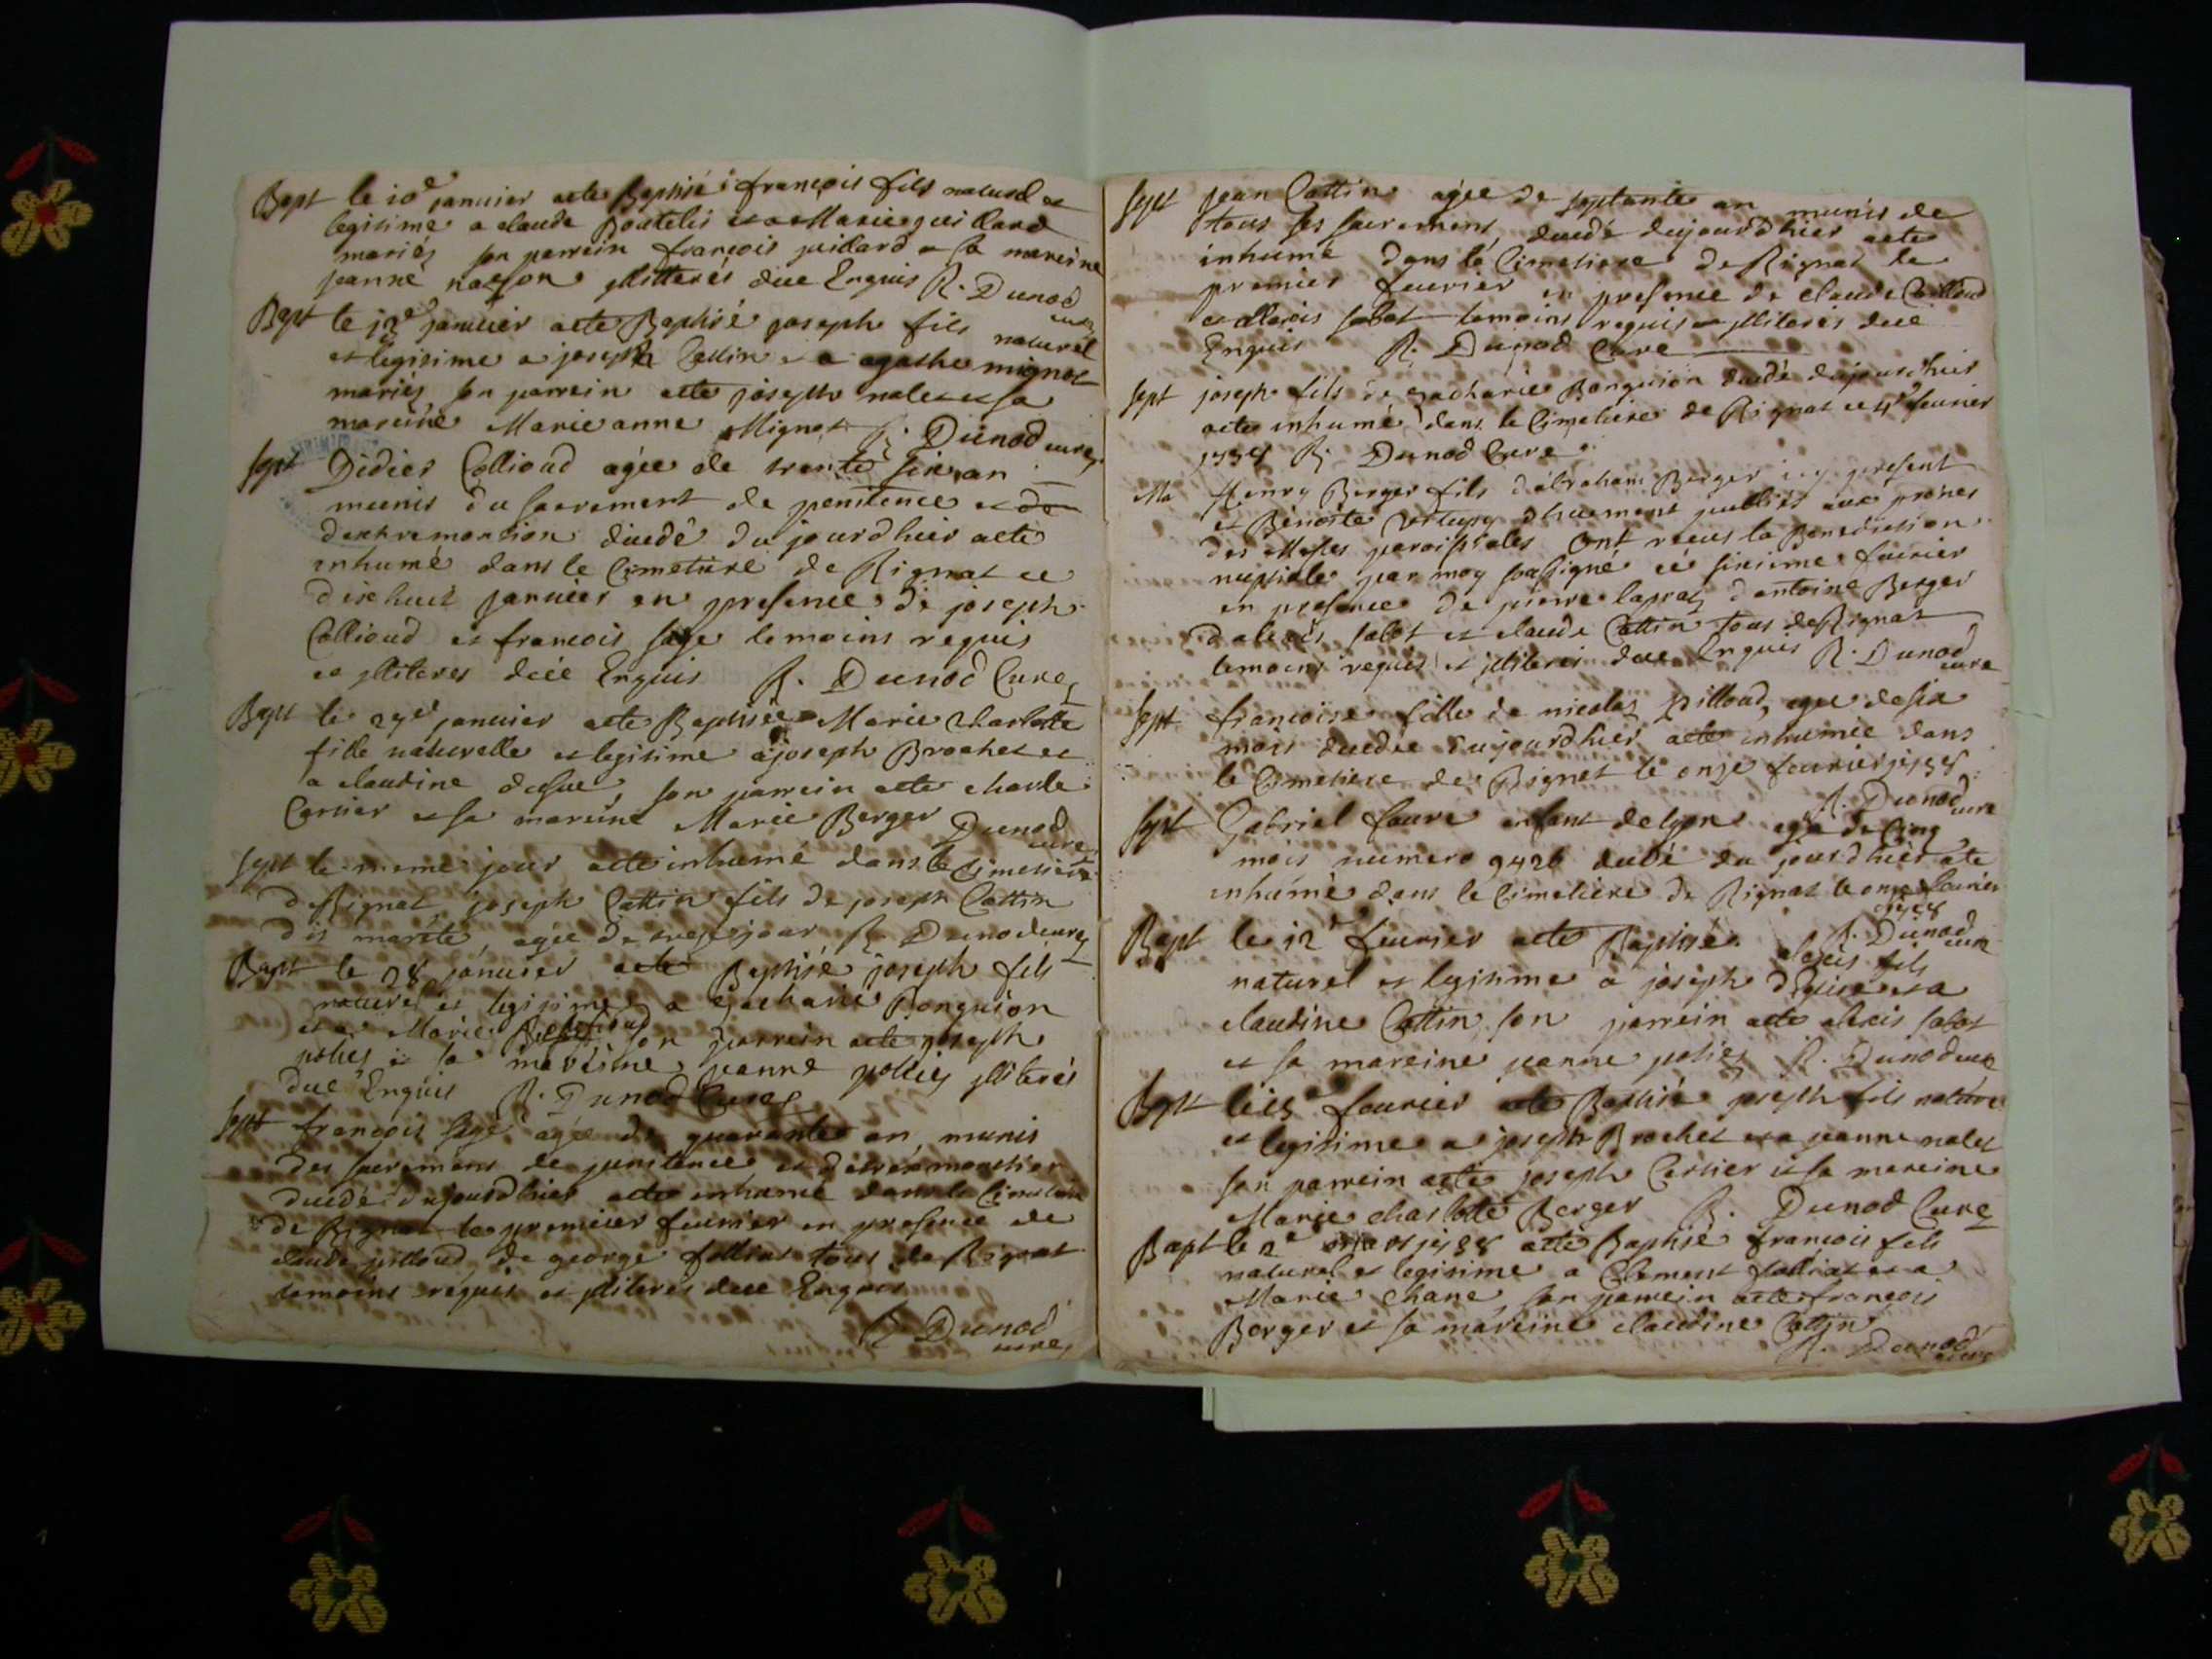 Bapt le 10e januier aete Baptisé francois fils naturel et
legitime a claude Boutelis et a Marie guillard
mariés son parrein francois juillard et sa mareine
jeanne illitterés duë Enquis R. Dunod
curé
Bapt le 12e januier aete Baptisé joseph fils naturel
et legitime a joseph Cattin et a agathe mignot
mariés son parrein aete joseph nalet et sa
mareine Marie anne Mignot R. Dunod curé
Sept Didier Collioud agée de trente six an
munis du sacrement de penitence et de
dextremontion duedé du jourdhier aete
inhumé dans le Cimetiere de Rignat ce
dixhuit januier en presence de joseph
Collioud et francois sage temoins requis
et illiteres duë Enquis R. Dunod Curé
Bapt le 27e januier aete Baptisée Marie charlotte
fille naturelle et legitime a joseph Brochet et
a claudine son parrein aete charle
Cartier et sa mareine Marie Berger Dunod
curé
Sept le meme jour aete inhumé dans le Cimetiere
de Rignat joseph Cattin fils de joseph Cattin
agée de jour R. Dunod curé
Bapt le 28 januier aete Baptisé joseph fils
naturel et legitime a Zacharie Bonguion
et a Marie son parrein aete joseph
poliez et sa mareine jeanne poliez illiterés
duë Enquis R. Dunod Curé
Sept francois sage agée de quarante an munis
des sacremens de penitence et
duedé dujourdhier aete inhumé dans le Cimetiere
de Rignat le premier feurier en presence de
claude pilloud de george follint tous de Rignat
temoins requis et illiterés duë Enquis
R. Dunod
curé
Sept jean Cattin agée de septante an munis de
tous ses sacremens duedé dujourdhier aete
inhumé dans le Cimetiere de Rignat le
premier feurier en presence de claude Collioud
et alexis sabot temoins requis et illiterés duë
Enquis R. Dunod Curé
Sept joseph fils de Zacharie Bonguion duedé dujourdhier
aete inhumé dans le Cimetiere de Rignat ce 4e feurier
1758 R. Dunod Curé
Ma Henry Berger fils dabraham Berger icy present
et Benoite dhuement publiés aux prones
des Messes paroissiales Ont receus la Benediction
nuptiale par moy soussigné ce sixieme feurier
en presence de pierre lapraz dantoine Berger
dalexis sabot et claude Cattin tous de Rignat
temoins requis et illiterés duë Enquis R. Dunod
curé
Sept francoise fille de nicolas pilloud, agée de six
mois duedée dujourdhier aete inhumée dans
le Cimetiere de Rignat le onze feurier 1758
R. Dunod
curé
Sept Gabriel faure enfant de lyon agé de Cinq
mois numero 9426 duedé du jourdhier aete
inhumé dans le Cimetiere de Rignat le onze feurier
1758
R. Dunod
curé
Bapt le 12e feurier aete Baptisé alexis fils
naturel et legitime a joseph et a
claudine Cattin son parrein aete alexis sabot
et sa mareine jeanne poliez R. Dunod curé
Bapt le 15e feurier aete Baptisé joseph fils naturel
et legitime a joseph Brochet et a jeanne nalet
son parrein aete joseph Cartier et sa mareine
Marie charlotte Berger R. Dunod Curé
Bapt le 2e mars 1758 aete Baptisé francois fils
naturel et legitime a Clement folliat et a
Marie chane, son parrein aete francois
Berger et sa mareine claudine Cattin
R. Dunod
curé